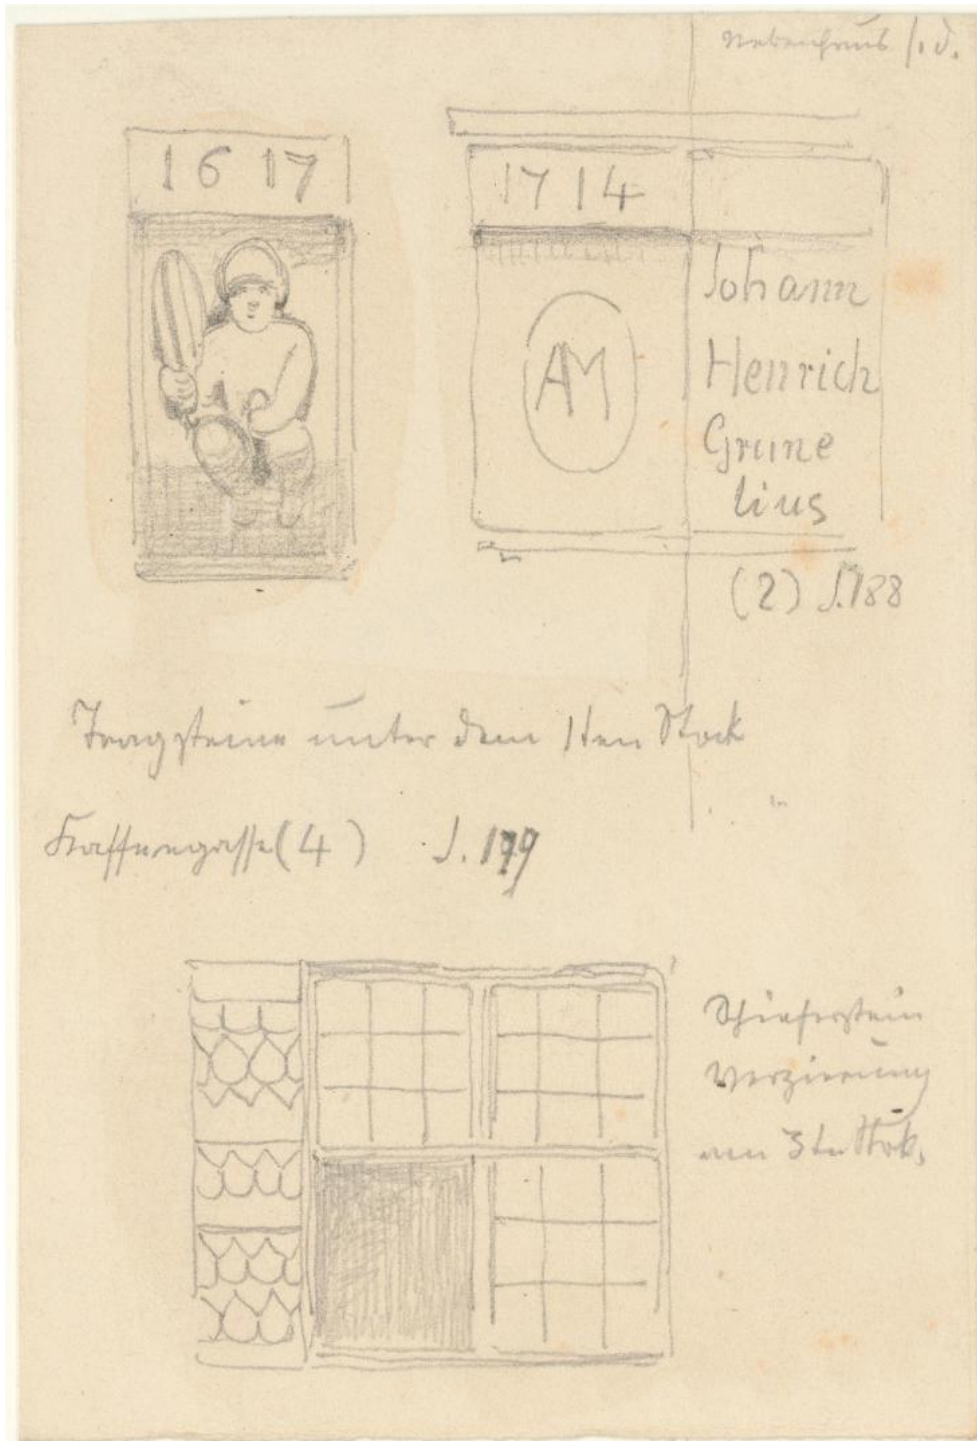 Nebenhaus
1617
1714
Johann
Henrich
Grune
lius
AM
(2) S. 188
Tragsteine unter dem 1ten Stock
(4) S. 179
Schieferstein
Verzierung
am 3ten Stock.